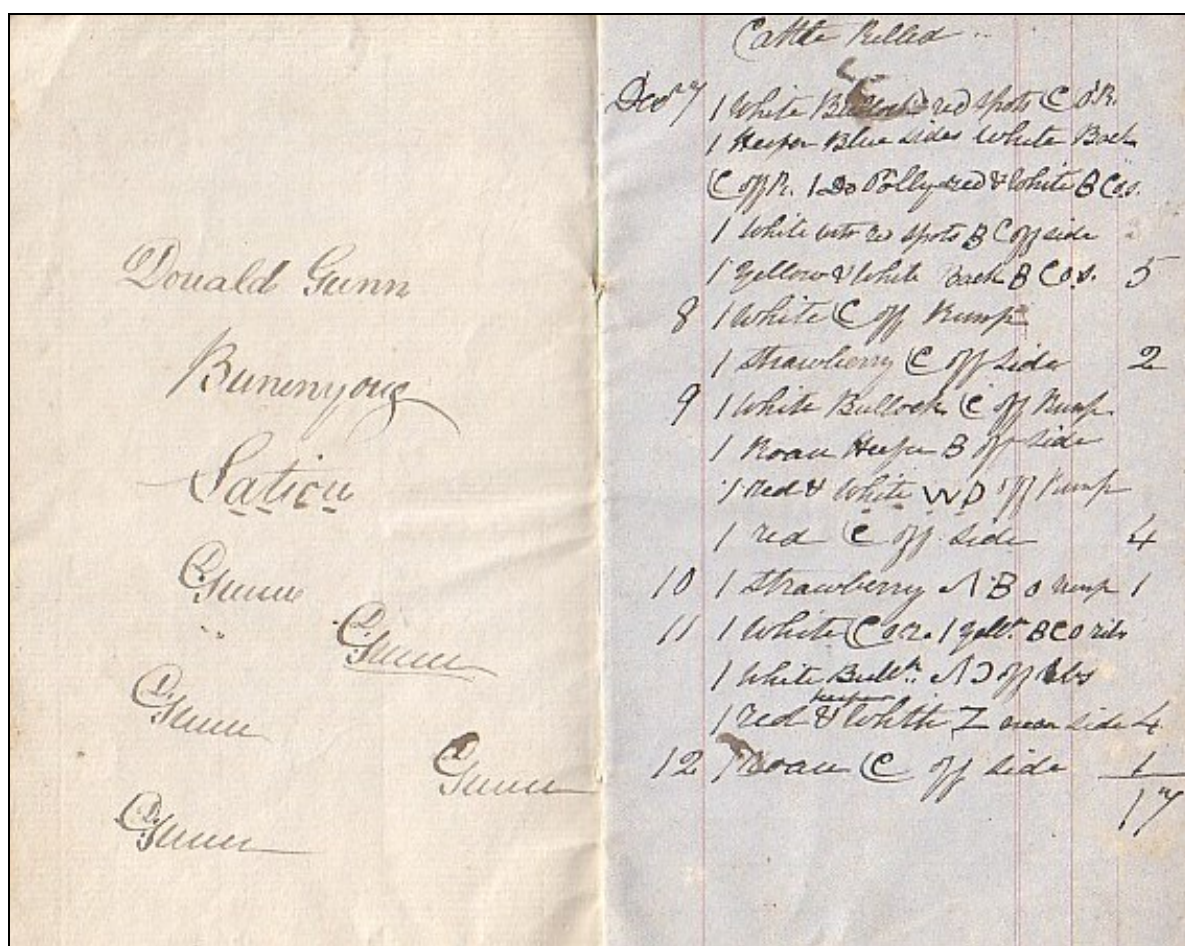 Donald Gunn
Buninyong
Sation
Gunn
D. Gunn
D. Gunn
D. Gunn
D. Gunn
Cattle Killed
Decr 7 1 White Bullock red spots C O.R.
1 Heifer Blue sides White Back
C off R. 1 Do Polly red & White B C o.s.
1 White with red spots B C off side
1 Yellow & White back B C o.s. 5
8 1 White C off Rump
1 Strawberry C off side 2
9 1 White Bullock C off Rump
1 Roan Heifer B off side
1 red & White WD off Rump
1 red C off side 4
10 1 Strawberry B o rump 1
11 1 White C o r. 1 Yellw B C o ribs
1 White Bullk off ribs
heifer
1 red & White near side 4
12 1 Roan C off side 1
17